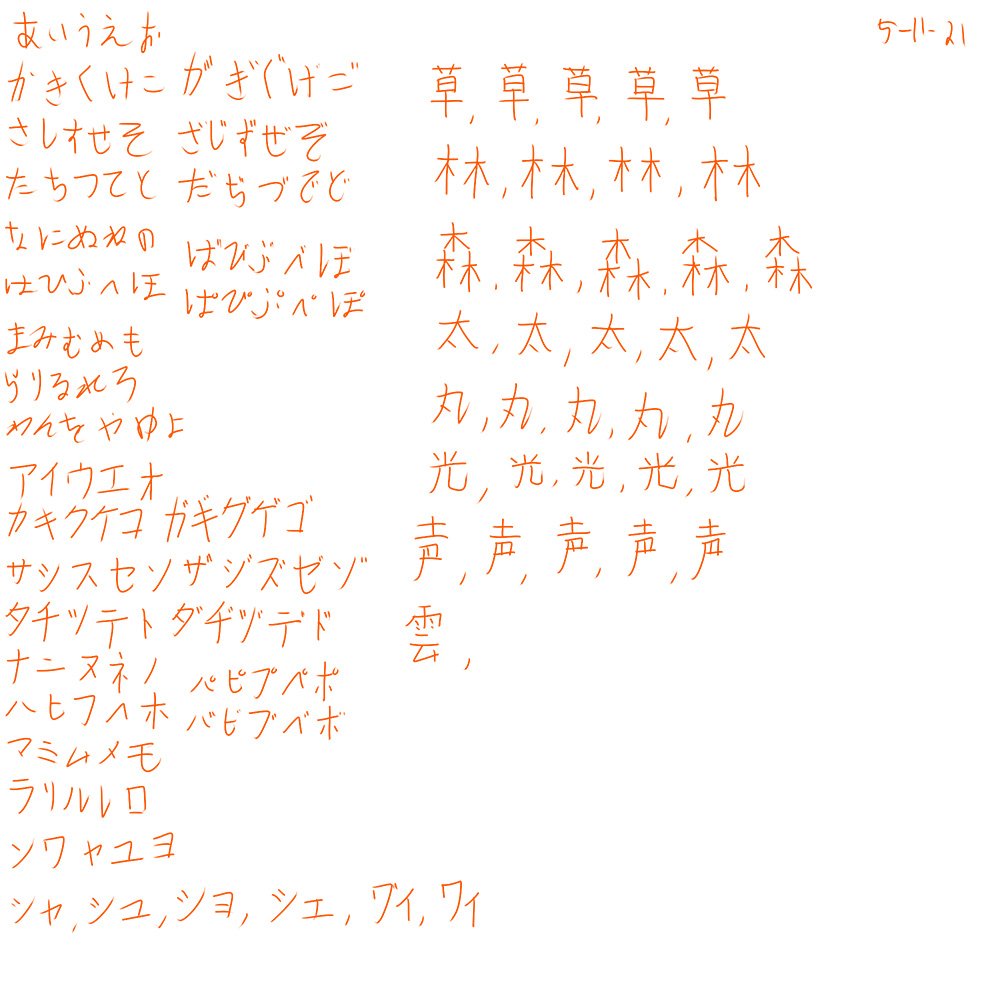 5-11-21
あいうえお
かきくけこ がぎぐげご
さしすせそ ざじずぜぞ
たちつてと だぢづでど
なにぬねの
はひふへほ ばびぶべぼ
ぱぴぷぺぽ
まみむめも
らりるれろ
わんをやゆよ
アイウエオ
カキクケコ ガギグゲゴ
サシスセソザジズゼゾ
タチツテト ダヂヅデド
ナニヌネノ
ハヒフヘホ パピプペポ
バビブベボ
マミムメモ
ラリルレロ
ンワヤユヨ
シャ,シユ,ショ,シエ,ヴイ,ワイ
草,草,草,草,草
林,林,林,林
森,森,森,森,森
太,太,太,太,太
丸,丸,丸,丸,丸
光,光,光,光,光
声,声,声,声,声
雲,